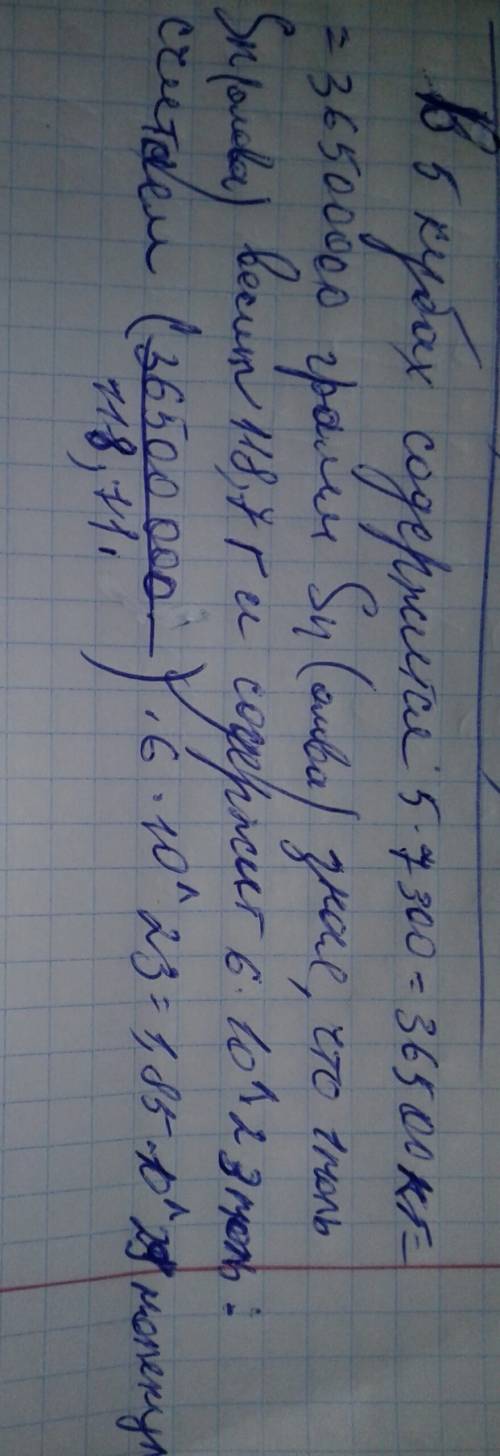 В 5 кубах содержится 5·7300=36500 кг=
=36500000 грамм Sn (олва) зная, что 1 моль
Sn (олова) весит 118,7 г и содержит 6·10^23 моль:
считаем (36500000
118,71.) ·6·10^23=1,85·10^29 молекул